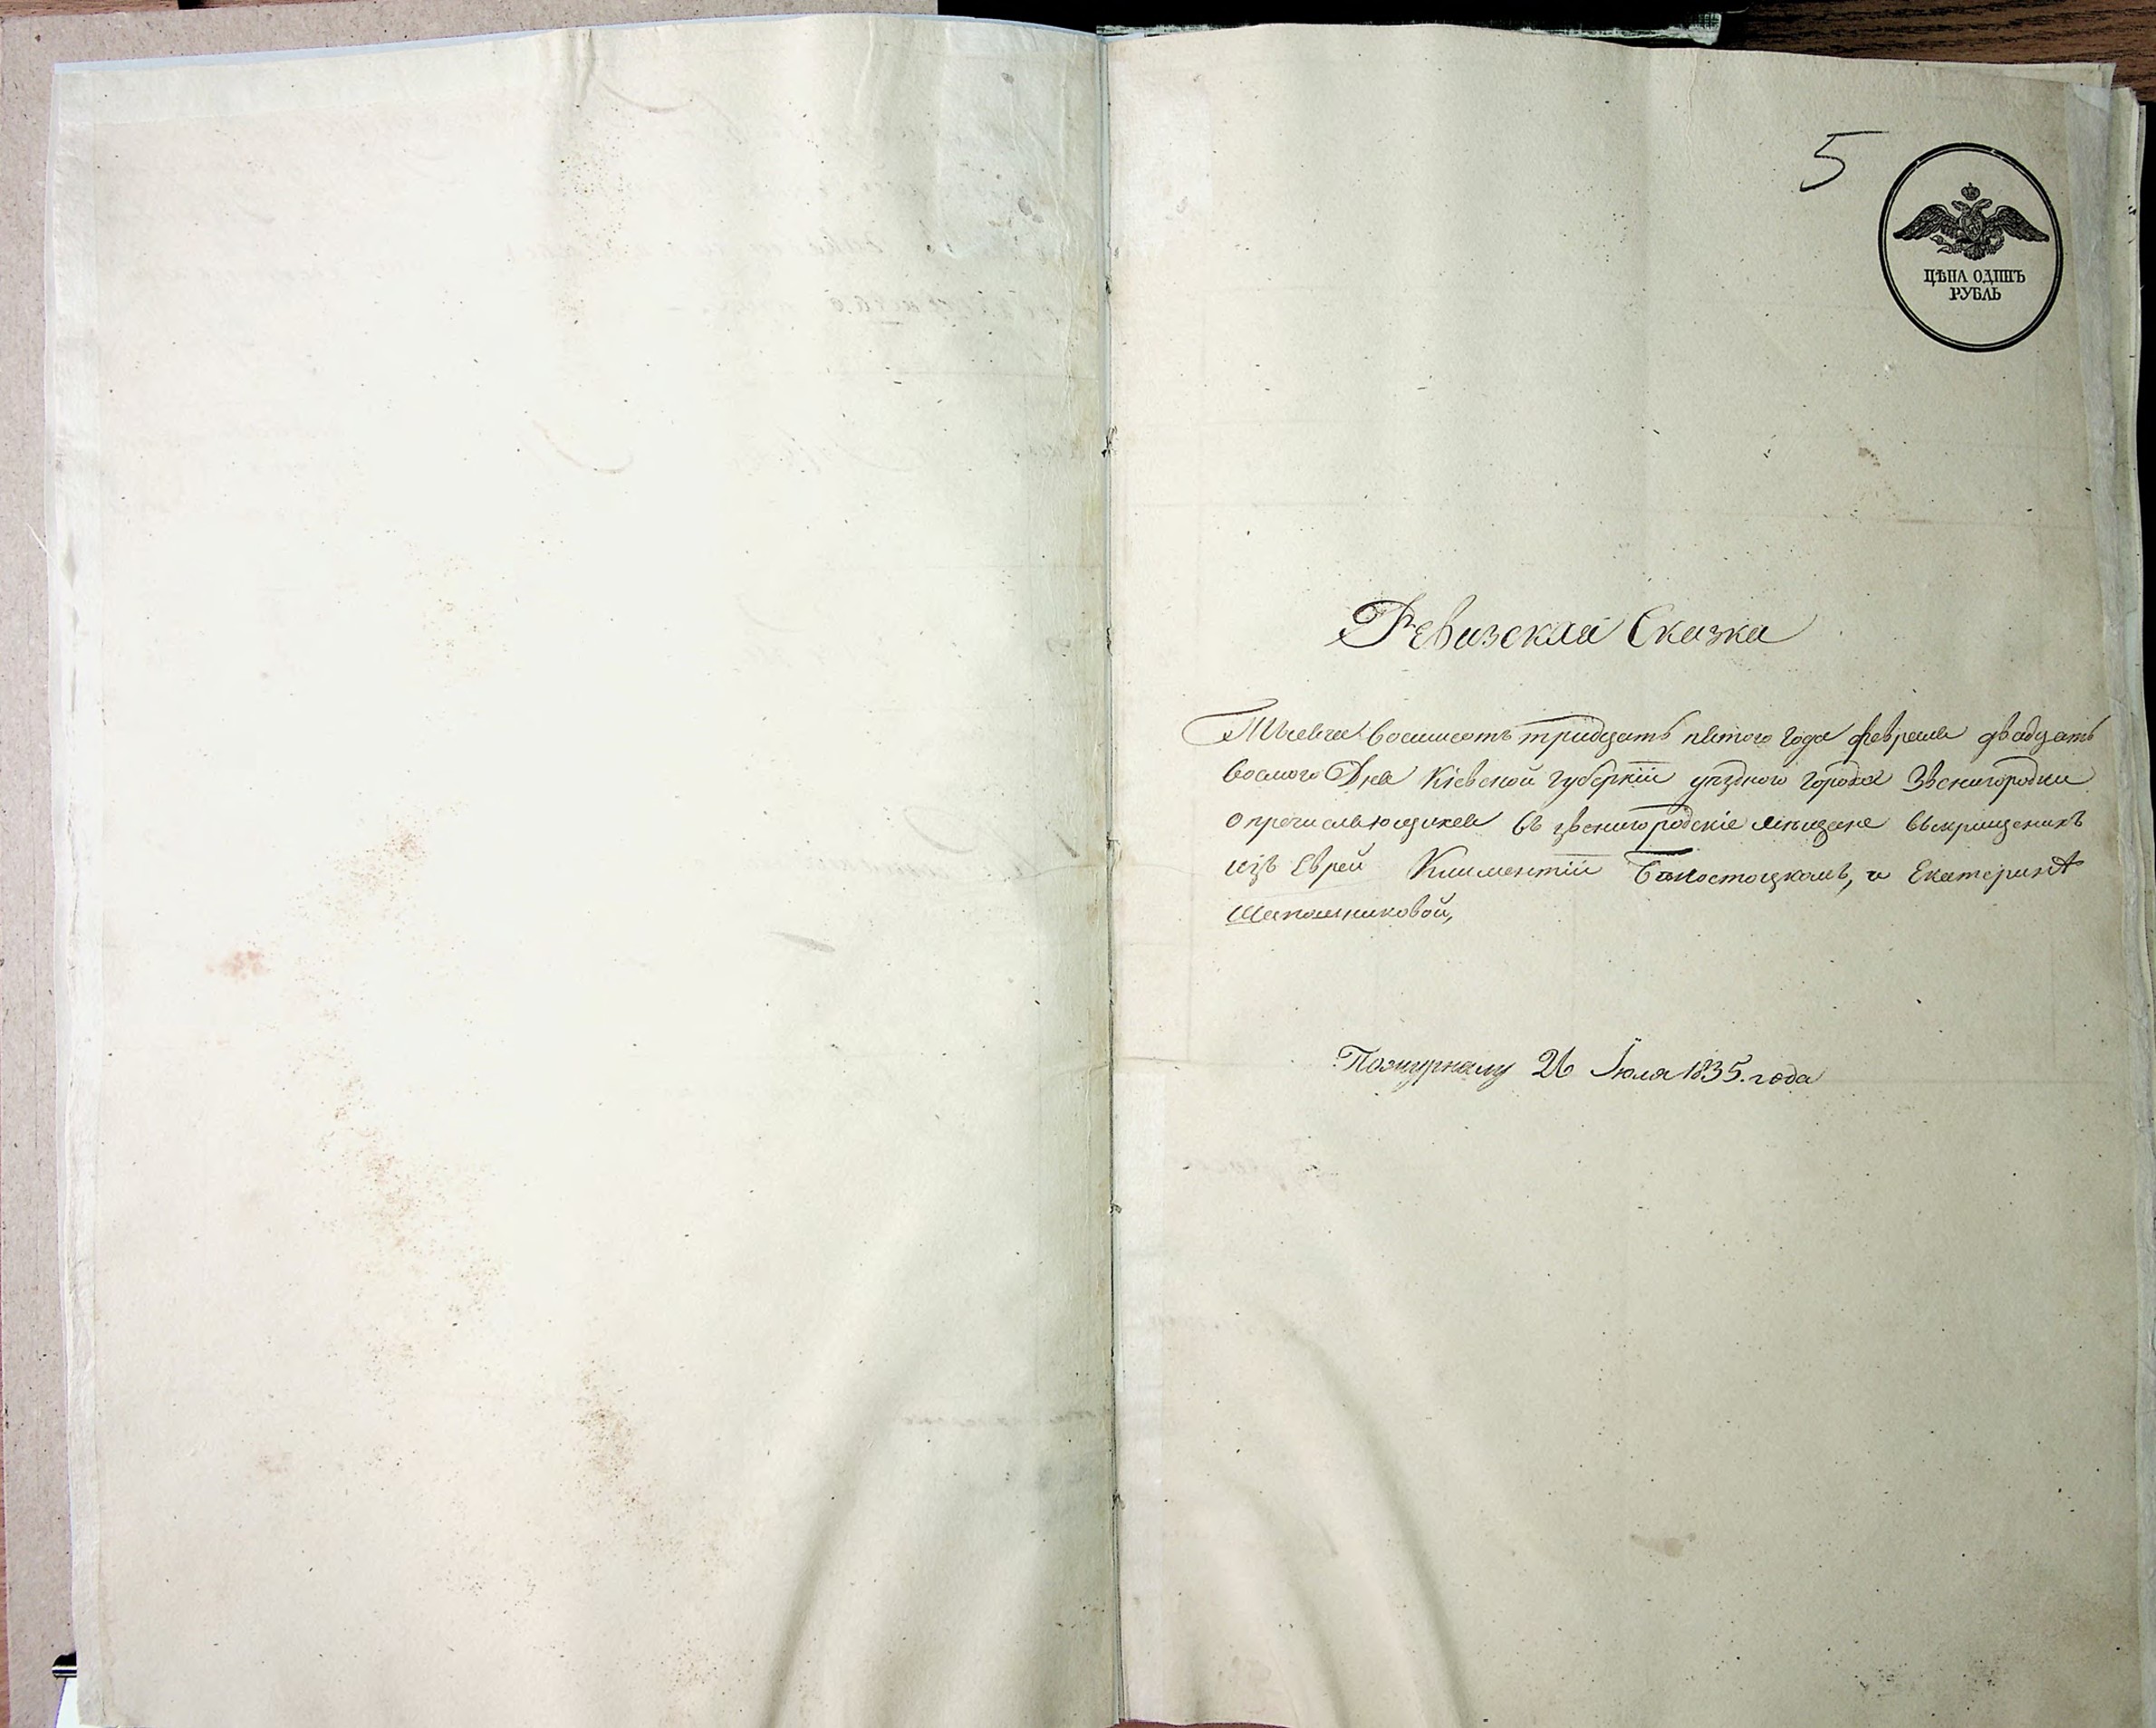 5
ЦѢНА ОДИНЪ
РУБЛЬ
Ревизская Сказка
Тысеча восимсотъ тридцать пятого года февраля двадцать
восмого Дня Кіевской губерніи уѣздного города Звенигородки
о пречисляющихся въ звенигородскіе мѣщане выкрищенихъ
изъ Еврей Климентіи Бѣлостоцкомъ, и Екатеринѣ
Шапошниковой,
Пожурналу 26 Іюля 1835. года